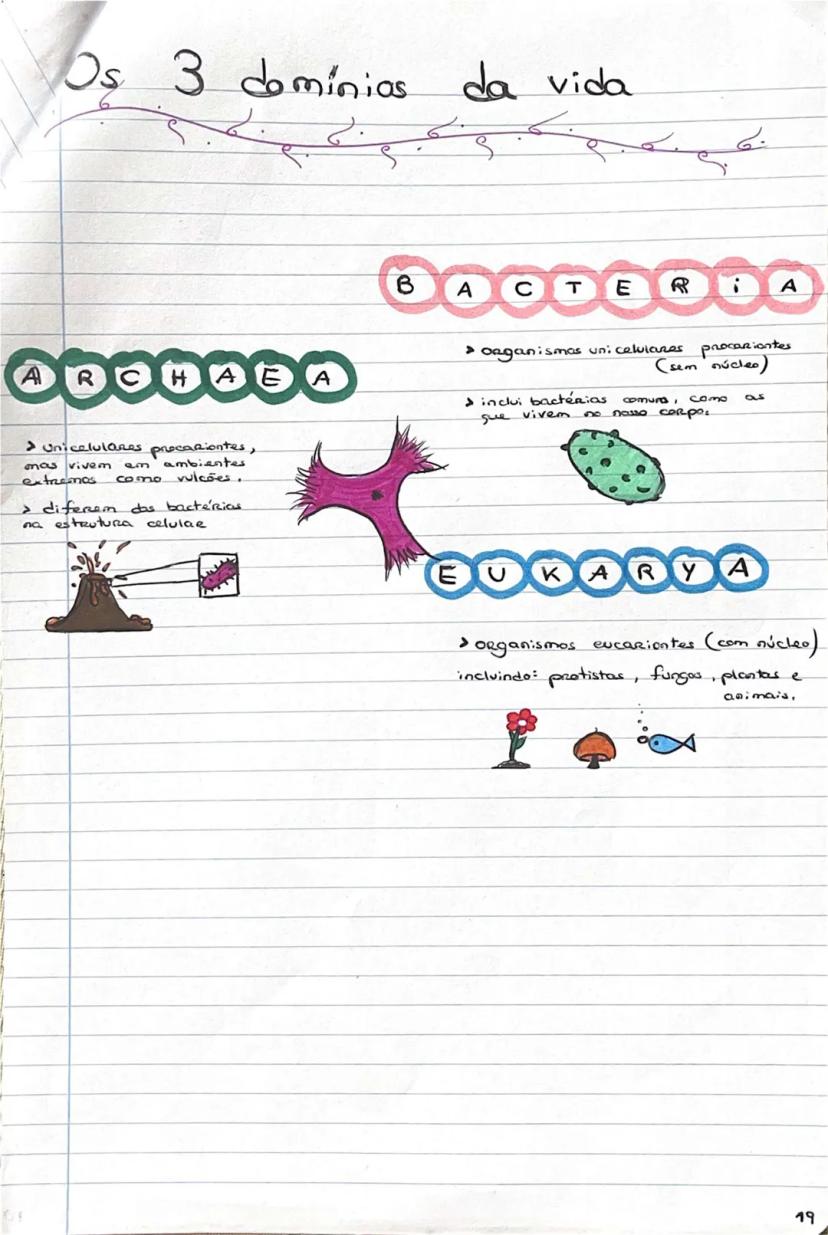 Os 3 domínios da vida
BACTERiA
> organismos unicelulares procariontes
(sem núcleo)
> inclui bactérias comuns, como as
que vivem no nosso corpo.
ARCHAEA
> unicelulares procariontes,
mas vivem em ambientes
extremos como vulcões.
> diferem das bactérias
na estrutura celular
EUKARYA
> organismos eucariontes (com núcleo)
incluindo: protistas, fungos, plantas e
animais.
19